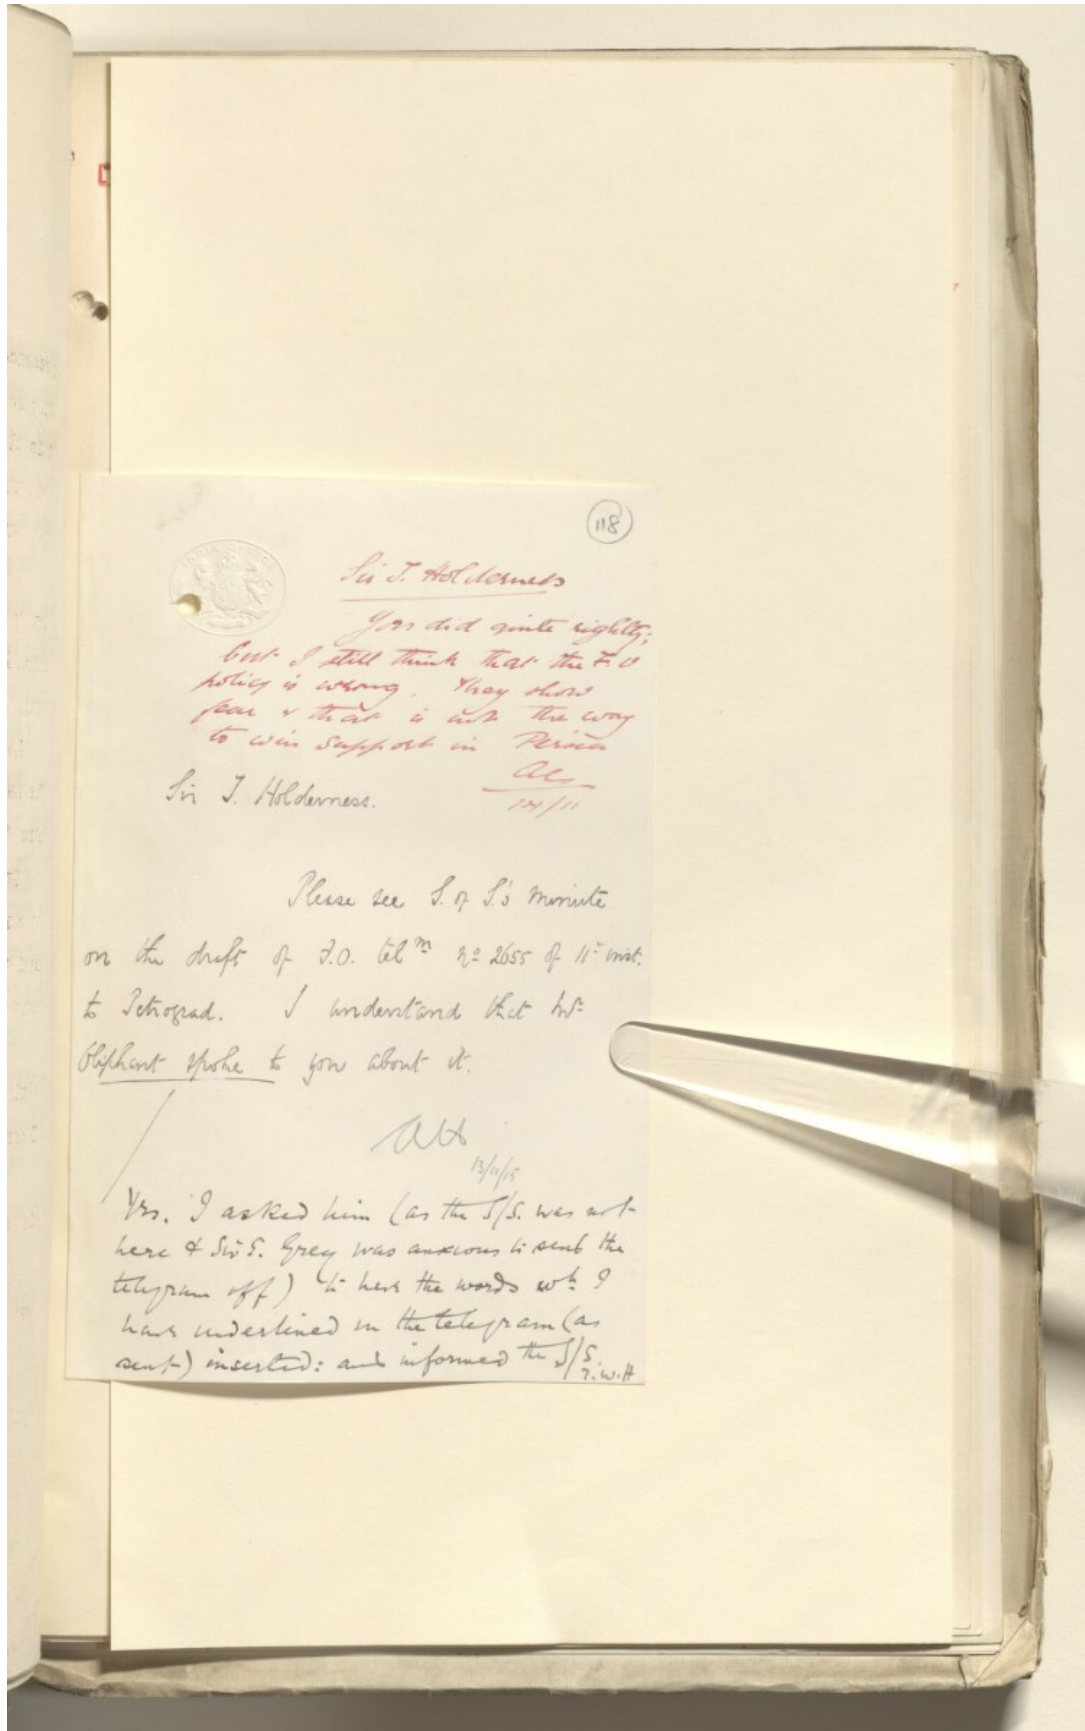 118
INDIA OFFICE
Sir T. Holderness
You did quite rightly;
but I still think that the F.O
policy is wrong. They show
fear & that is not the way
to win support in Persia
AC
14/11
Sir T. Holderness.
Please see S. of S.'s minute
on the draft of F.O. telm no 2655 of 11th inst.
to Petrograd. I understand that Mr
Oliphant spoke to you about it.
13/11/15
Yes. I asked him (as the S/S. was not
here & Sir E. Grey was anxious to send the
telegram off) to have the words wh I
have underlined in the telegram (as
sent) inserted: and informed the S/S.
T.W.H